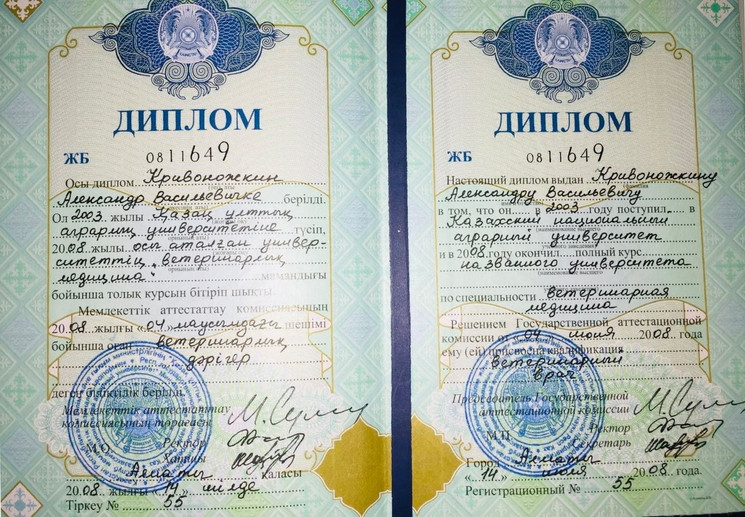 ДИПЛОМ
ЖБ 0811649
Осы диплом Кривоножкин
Александр Васильевичке берілді.
Ол 2003 жылы Қазақ ұлттық
аграрлық университетіне түсіп,
2008 жылы осы аталған универ-
ситеттің „ветеринарлық
медицина" мамандығы
бойынша толық курсын бітіріп шықты
Мемлекеттік аттестаттау комиссиясының
2008 жылғы «04 маусымдағы шешімі
бойынша оған ветеринарлық
дәрігер
деген біліктілік берілді.
Мемлекеттік аттестаттау
комиссиясының төрағасы
М.О. Ректор
Хатшы
Алматы қаласы
2008 жылғы «14» шілде
Тіркеу № 55
ДИПЛОМ
ЖБ 0811649
Настоящий диплом выдан Кривоножкину
Александру Васильевичу
в том, что он в 2003 году поступил в
Казахский национальный
аграрный университет
и в 2008 году окончил полный курс
названного университета
по специальности ветеринарная
медицина
Решением Государственной аттестационной
комиссии от 04 июня 2008 года
ему (ей) присвоена квалификация
ветеринарный
врач
Председатель Государственной
аттестационной комиссии
М.П. Ректор
Секретарь
Город Алматы
«14» июля 2008 года.
Регистрационный № 55